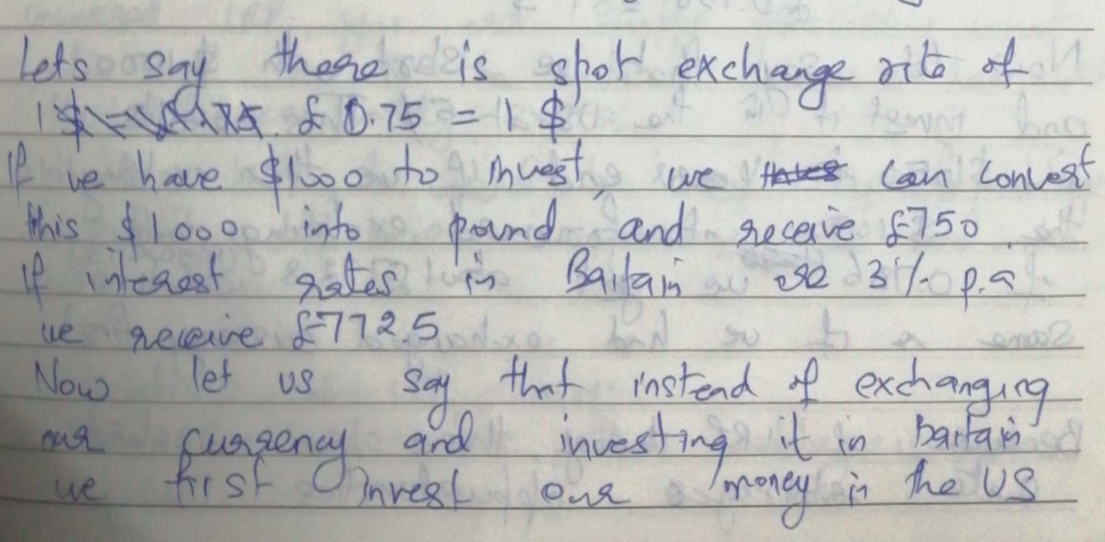 Lets say there is spot exchange rite of
£ 0.75 = 1 $
If we have $1000 to invest, we can convert
this $1000 into pound and receive £750.
If interest rates in Baitain are 3% p.a
we receive £772.5
Now let us say that instead of exchanging
our currency and investing it in Baitain
we first invest our money in the US